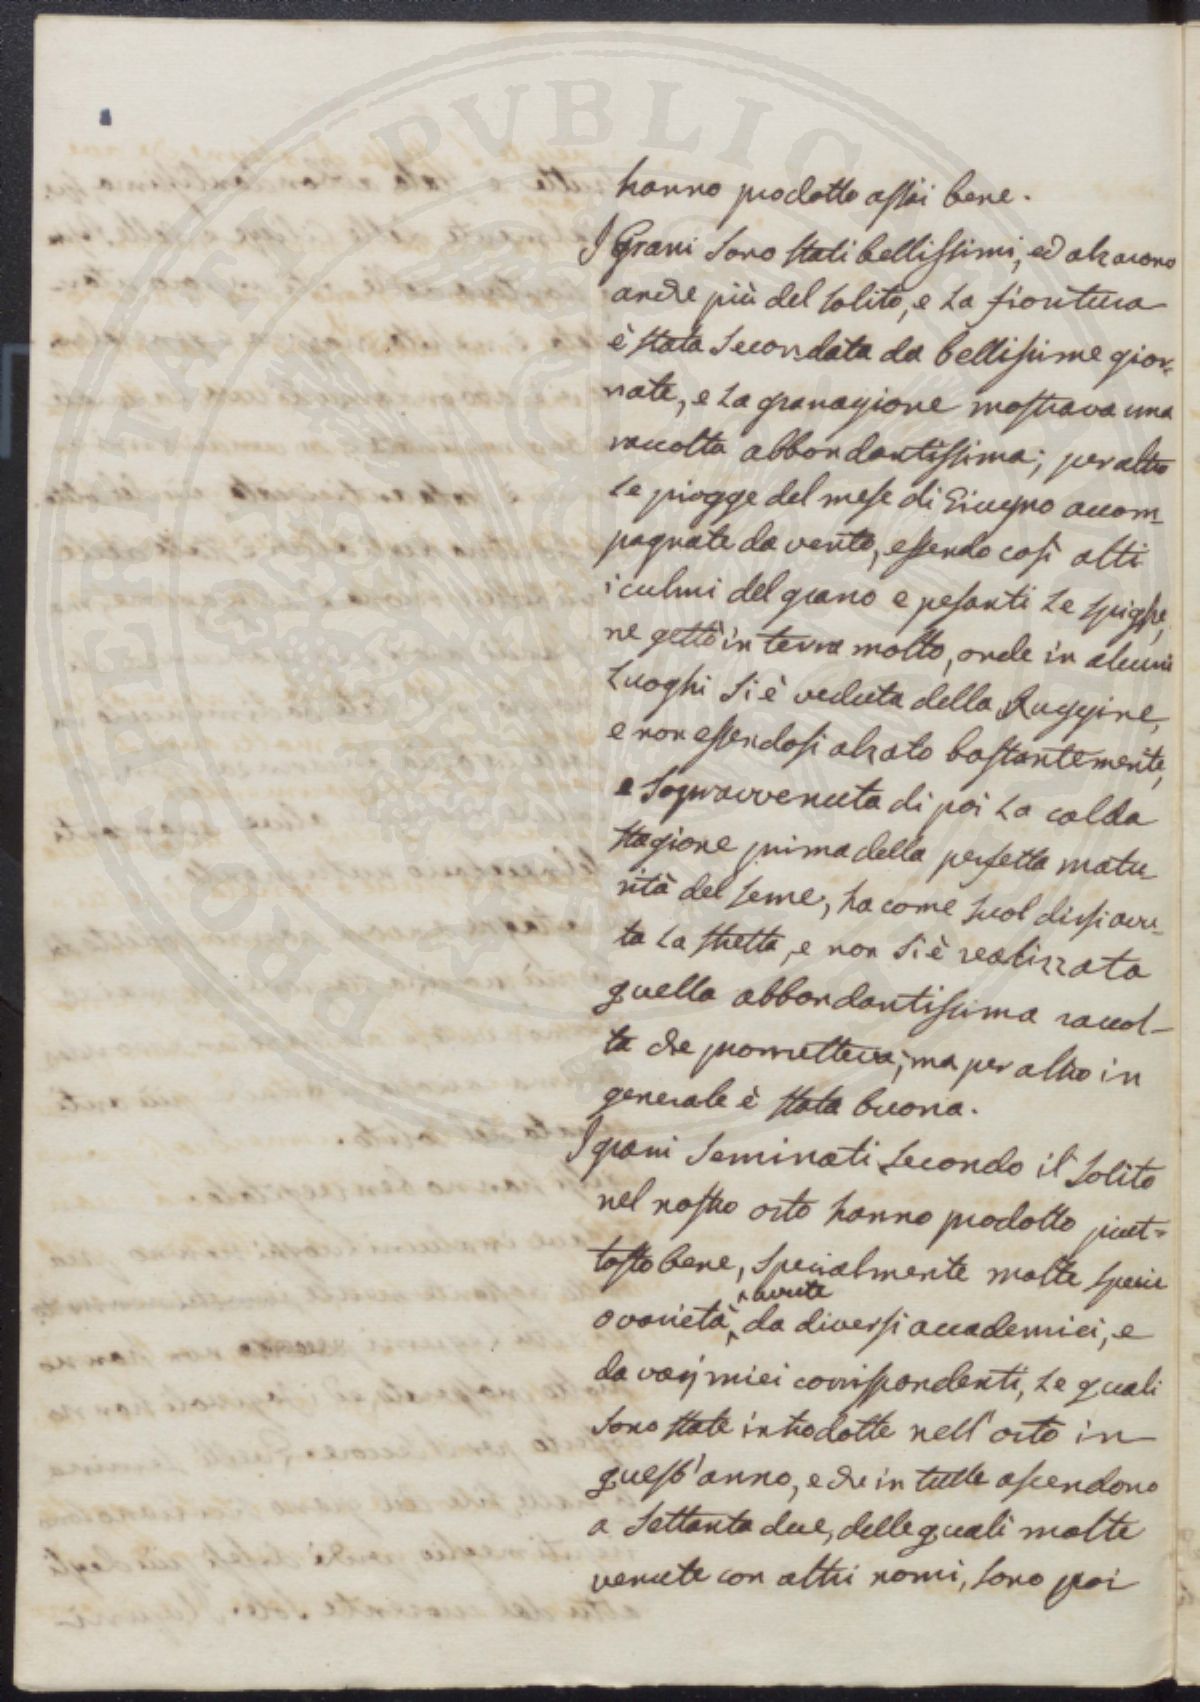 hanno prodotto assai bene.
I Grani sono stati bellissimi, ed alzarono
anche più del solito, e la fioritura
è stata secondata da bellissime gior-
nate, e la granagione mostrava una
raccolta abbondantissima; per altro
le piogge del mese di Giugno accom-
pagnate da vento, essendo così alti
i culmi del grano e pesanti le spighe,
ne gettò in terra molto, onde in alcuni
luoghi si è veduta della Ruggine,
e non essendosi alzato bastantemente,
e sopravvenuta di poi la calda
stagione prima della perfetta matu-
rità del seme, ha come suol dirsi avu-
ta la stretta, e non si è realizzata
quella abbondantissima raccol-
ta che prometteva; ma per altro in
generale è stata buona.
I grani seminati secondo il solito
nel nostro orto hanno prodotto piut-
tosto bene, specialmente molte specie
o varietà, avute da diversi accademici, e
da varj miei corrispondenti, le quali
sono state introdotte nell'orto in
quest'anno, e che in tutte ascendono
a settanta due, delle quali molte
venute con altri nomi, sono poi